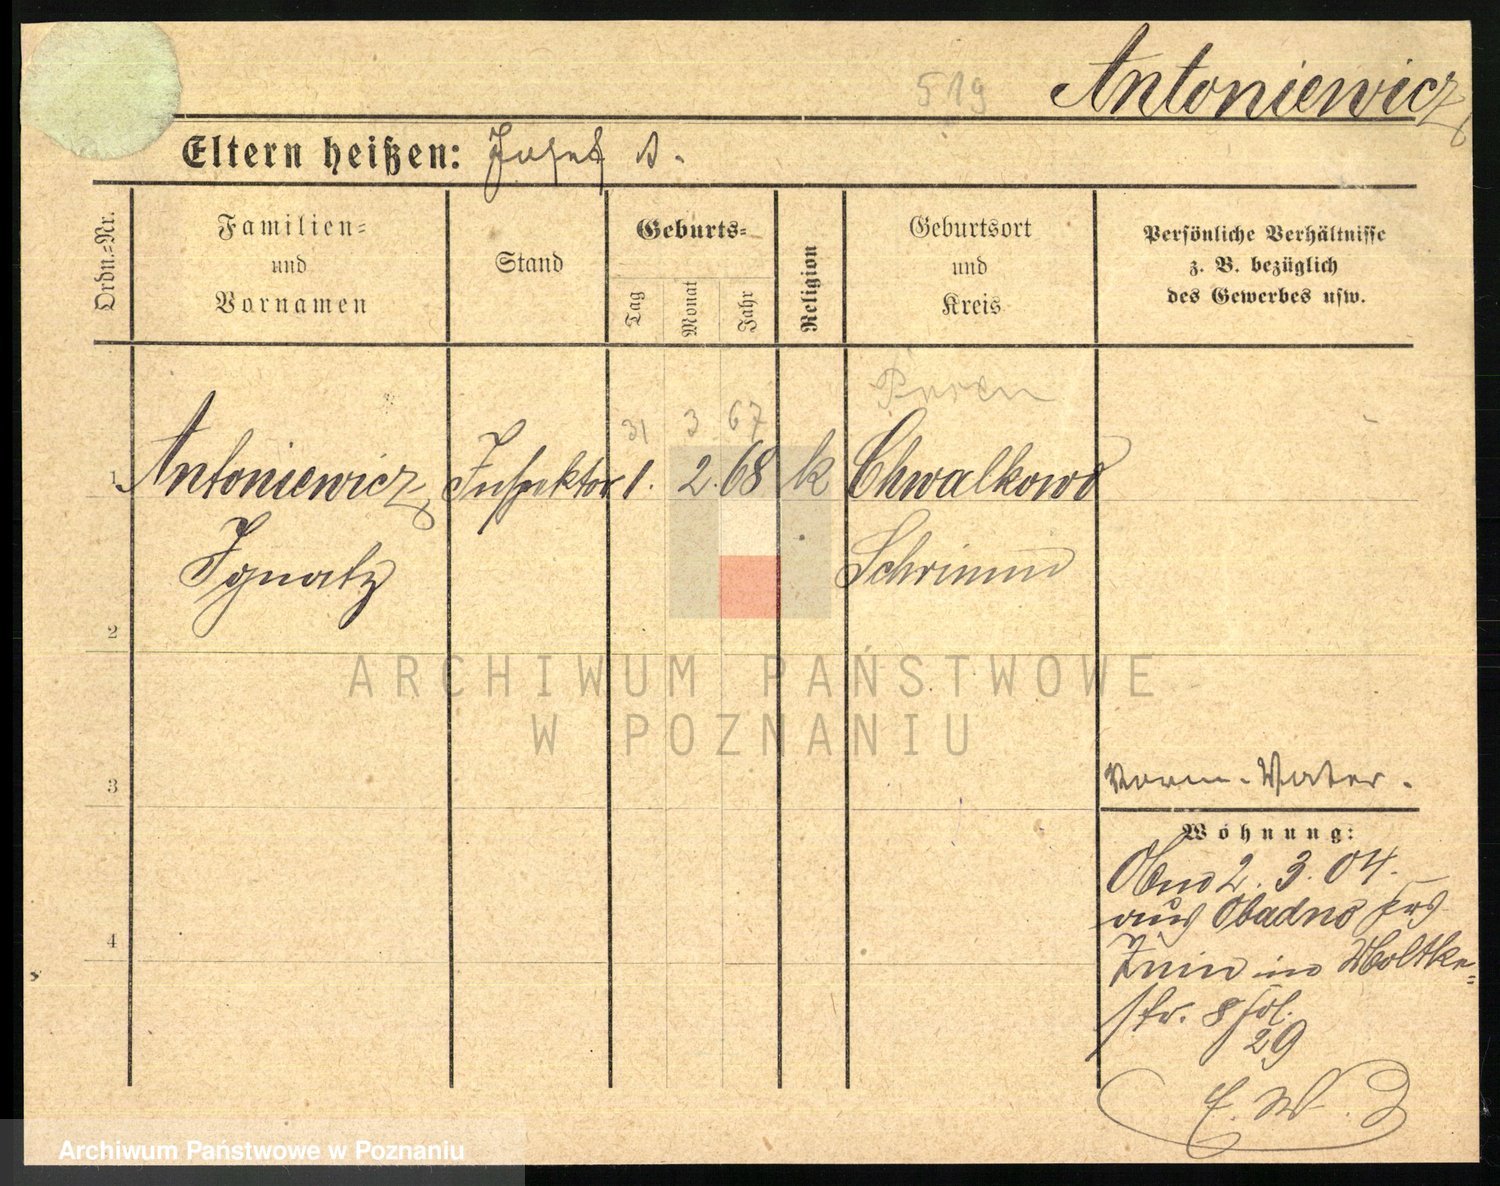 519
Antoniewicz
Eltern heißen: Josef A.
Ordn.=Nr.
Familien=
und
Vornamen
Stand
Geburts=
Tag
Monat
Jahr
Religion
Geburtsort
und
Kreis
Persönliche Verhältnisse
z. B. bezüglich
des Gewerbes usw.
31 3 67
1 Antoniewicz Inspektor 1. 2. 68 k Chwalkowo
Ignatz Schrimm
2
ARCHIWUM PAŃSTWOWE
W POZNANIU
3
Vater.
Wohnung:
2. 3. 04.
aus Obadno
Znin in Moltke=
str. 8
29
E. W. Z
4
Archiwum Państwowe w Poznaniu